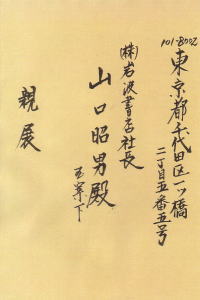 101-8002
東京都千代田区一ツ橋
二丁目五番五号
(株)岩波書店社長
山口昭男殿
玉案下
親展